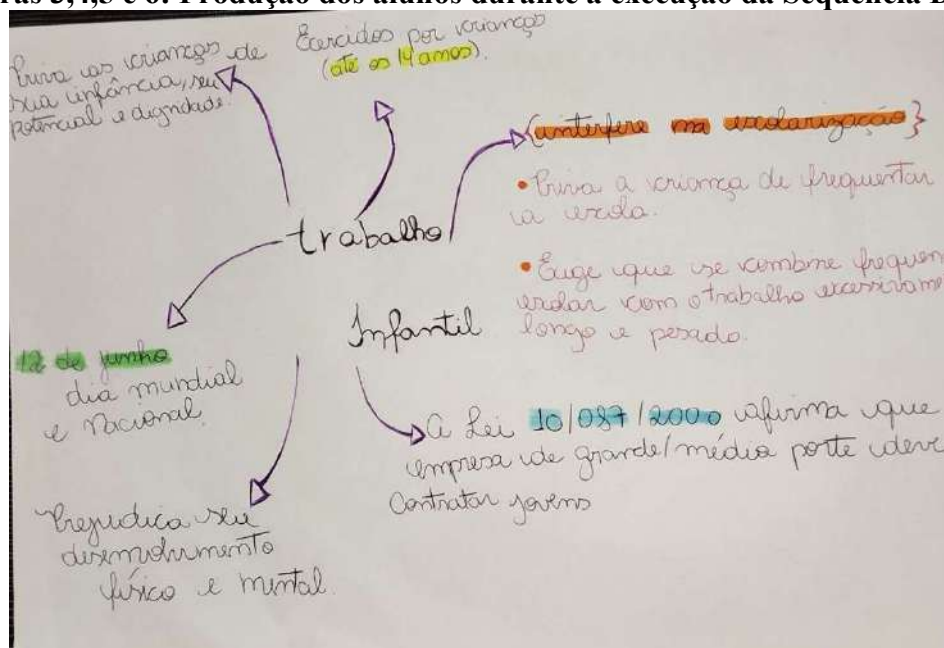 ras 3,4,5 e 6: Produção dos alunos durante a execução da Sequência D
Priva as crianças de
sua infância, seu
potencial e dignidade.
Exercidos por crianças
(até os 14 anos).
{interfere na escolarização}
• Priva a criança de frequentar
a escola.
• Exige que se combine frequen
escolar com o trabalho excessivame
longo e pesado.
trabalho
Infantil
12 de junho
dia mundial
e Nacional.
A Lei 10/087/2000 afirma que
empresa de grande/médio porte deve
Contratar jovens
Prejudica seu
desenvolvimento
físico e mental.